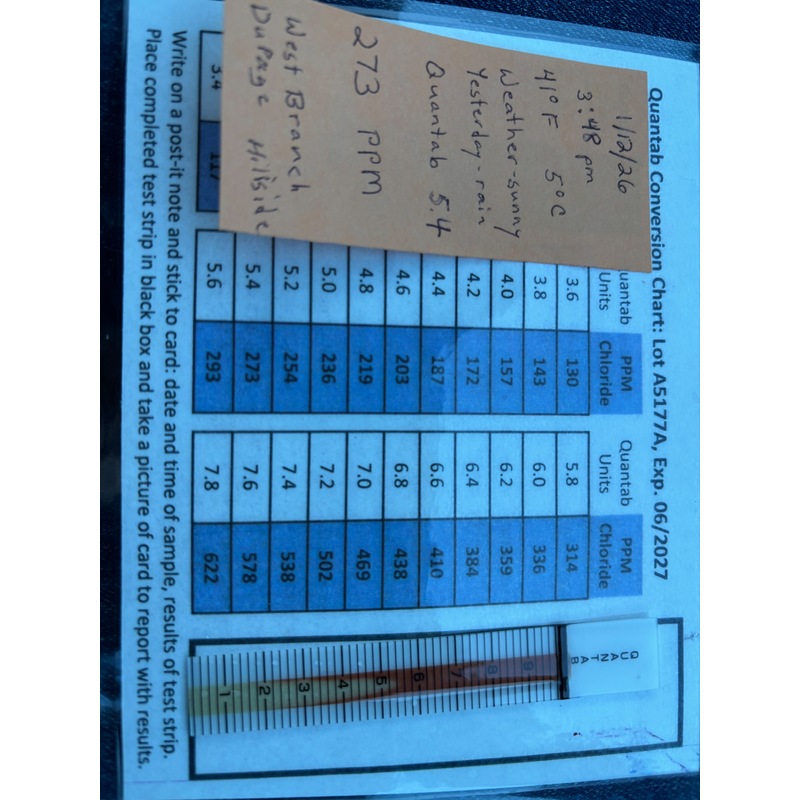 Quantab Conversion Chart: Lot A5177A, Exp. 06/2027
1/12/26
3:48 pm
41° F 5°C
Weather-sunny
Yesterday-rain
Quantab 5.4
273 PPM
West Branch
DuPage Hillside
3.4 117
uantab PPM
Units Chloride
3.6 130
3.8 143
4.0 157
4.2 172
4.4 187
4.6 203
4.8 219
5.0 236
5.2 254
5.4 273
5.6 293
Quantab PPM
Units Chloride
5.8 314
6.0 336
6.2 359
6.4 384
6.6 410
6.8 438
7.0 469
7.2 502
7.4 538
7.6 578
7.8 622
QUANTAB
9
8
7
6
5
4
3
2
1
Write on a post-it note and stick to card: date and time of sample, results of test strip.
Place completed test strip in black box and take a picture of card to report with results.